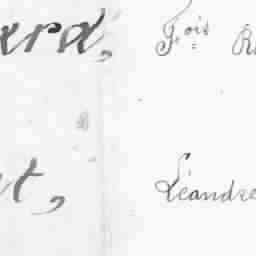 ard, F.ois R
t, Léandre